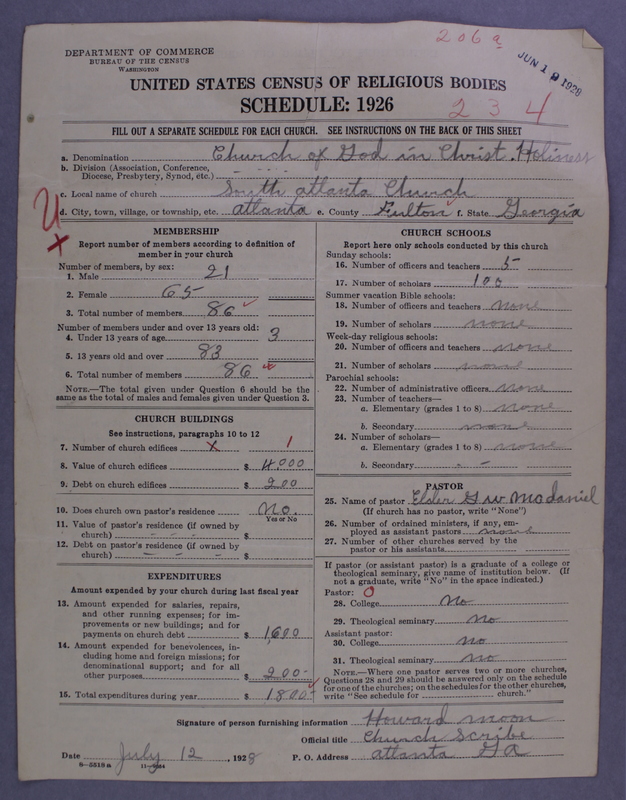 206 a
JUN 19 1928
234
DEPARTMENT OF COMMERCE
BUREAU OF THE CENSUS
WASHINGTON
UNITED STATES CENSUS OF RELIGIOUS BODIES
SCHEDULE: 1926
FILL OUT A SEPARATE SCHEDULE FOR EACH CHURCH. SEE INSTRUCTIONS ON THE BACK OF THIS SHEET
a. Denomination Church of God in Christ. Holiness
b. Division (Association, Conference,
Diocese, Presbytery, Synod, etc.)
c. Local name of church South atlanta Church
d. City, town, village, or township, etc. atlanta e. County Fulton f. State Georgia
MEMBERSHIP
Report number of members according to definition of
member in your church
Number of members, by sex:
1. Male 21
2. Female 65
3. Total number of members 86
Number of members under and over 13 years old:
4. Under 13 years of age 3
5. 13 years old and over 83
6. Total number of members 86
NOTE.—The total given under Question 6 should be the
same as the total of males and females given under Question 3.
CHURCH BUILDINGS
See instructions, paragraphs 10 to 12
7. Number of church edifices x 1
8. Value of church edifices $ 4,000
9. Debt on church edifices $ 200
10. Does church own pastor's residence No.
Yes or No
11. Value of pastor's residence (if owned by
church) $
12. Debt on pastor's residence (if owned by
church) $
EXPENDITURES
Amount expended by your church during last fiscal year
13. Amount expended for salaries, repairs,
and other running expenses; for im-
provements or new building; and for
payments on church debt $ 1,600
14. Amount expended for benevolences, in-
cluding home and foreign missions; for
denominational support; and for all
other purposes $ 200
15. Total expenditures during year $ 1800
CHURCH SCHOOLS
Report here only schools conducted by this church
Sunday schools:
16. Number of officers and teachers 5
17. Number of scholars 100
Summer vacation Bible schools:
18. Number of officers and teachers none
19. Number of scholars none
Week-day religious schools:
20. Number of officers and teachers none
21. Number of scholars none
Parochial schools:
22. Number of administrative officers none
23. Number of teachers—
a. Elementary (grades 1 to 8) none
b. Secondary none
24. Number of scholars—
a. Elementary (grades 1 to 8) none
b. Secondary - -
PASTOR
25. Name of pastor Elder G W Mcdaniel
(If church has no pastor, write "None")
26. Number of ordained ministers, if any, em-
ployed as assistant pastors none
27. Number of other churches served by the
pastor or his assistants
If pastor (or assistant pastor) is a graduate of a college or
theological seminary, give name of institution below. (If
not a graduate, write "No" in the space indicated.)
Pastor: 0
28. College No
29. Theological seminary No
Assistant pastor:
30. College No
31. Theological seminary No
NOTE.—Where one pastor serves two or more churches,
Questions 28 and 29 should be answered only on the schedule
for one of the churches; on the schedules for the other churches,
write "See schedule for church."
Signature of person furnishing information Howard moon
Official title Church Scribe
Date July 12, 1928 P. O. Address atlanta GA